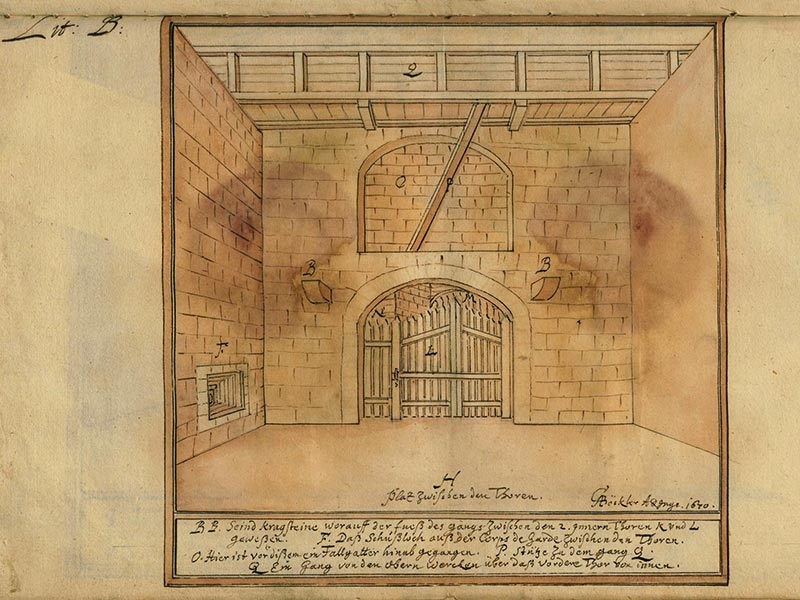 Lit: B:
Q
O
P
B
B
N
M
L
F.
H
Platz zwischen den Thoren.
GABöckler Arg. 1670.
B B. Seind kragsteine worauff der fueß des gangs zwischen den 2. innern Thoren K und L
geweßen. F. Daß Schußloch auß der Corps de Garde zwischen den Thoren.
O. Hier ist vor dißem ein Fallgatter hinab gegangen. P. Stütze zu dem gang Q
Q Ein Gang von den obern wercken über daß vordere Thor von innen.